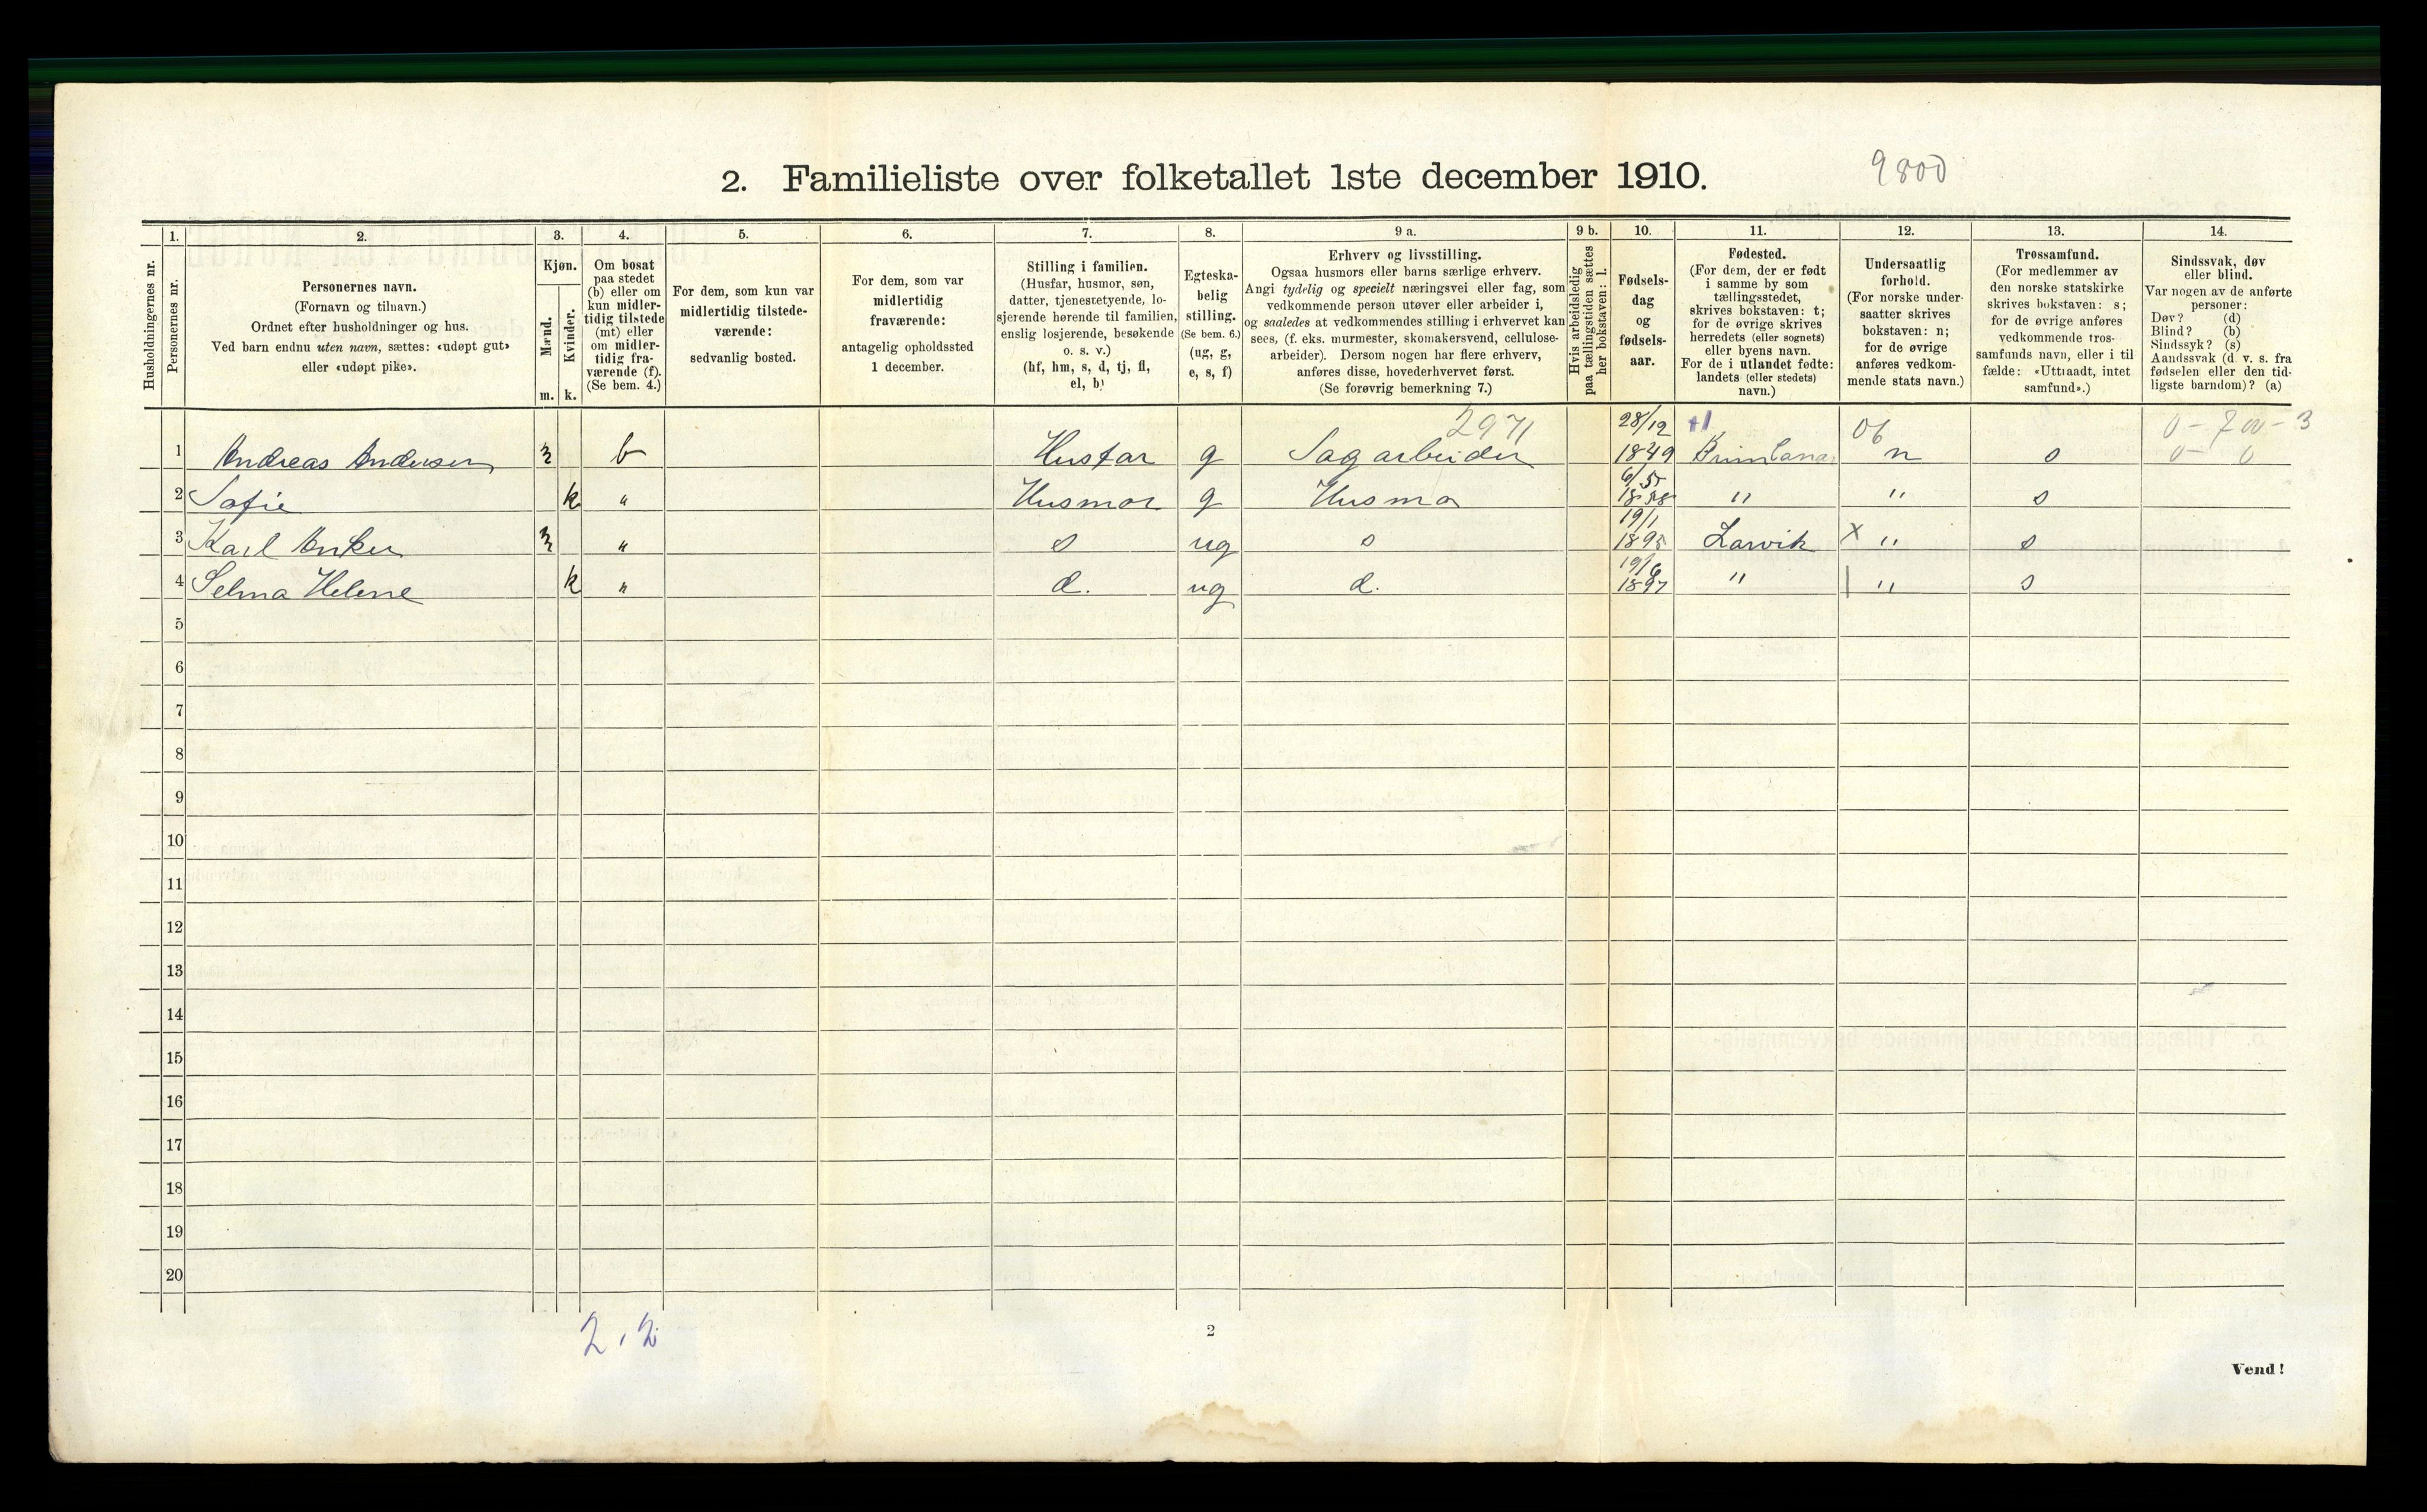 2. Familieliste over folketallet 1ste december 1910.
9800
1. 2. 3. 4. 5. 6. 7. 8. 9 a. 9 b. 10. 11. 12. 13. 14.
Husholdningernes nr.
Personernes nr.
Personernes navn.
(Fornavn og tilnavn.)
Ordnet efter husholdninger og hus.
Ved barn endnu uten navn, sættes: «udøpt gut»
eller «udøpt pike».
Kjøn.
Mænd.
m.
Kvinder.
k.
Om bosat
paa stedet
(b) eller om
kun midler-
tidig tilstede
(mt) eller
om midler-
tidig fra-
værende (f).
(Se bem. 4.)
For dem, som kun var
midlertidig tilstede-
værende:
sedvanlig bosted.
For dem, som var
midlertidig
fraværende:
antagelig opholdssted
1 december.
Stilling i familien.
(Husfar, husmor, søn,
datter, tjenestetyende, lo-
sjerende hørende til familien,
enslig losjerende, besøkende
o. s. v.)
(hf, hm, s, d, tj, fl,
el, b)
Egteska-
belig
stilling.
(Se bem. 6.)
(ug, g,
e, s, f)
Erhverv og livsstilling.
Ogsaa husmors eller barns særlige erhverv.
Angi tydelig og specielt næringsvei eller fag, som
vedkommende person utøver eller arbeider i,
og saaledes at vedkommendes stilling i erhvervet kan
sees, (f. eks. murmester, skomakersvend, cellulose-
arbeider). Dersom nogen har flere erhverv,
anføres disse, hovederhvervet først.
(Se forøvrig bemerkning 7.)
Hvis arbeidsledig
paa tællingstiden sættes
her bokstaven: l.
Fødsels-
dag
og
fødsels-
aar.
Fødested.
(For dem, der er født
i samme by som
tællingsstedet,
skrives bokstaven: t;
for de øvrige skrives
herredets (eller sognets)
eller byens navn.
For de i utlandet fødte:
landets (eller stedets)
navn.)
Undersaatlig
forhold.
(For norske under-
saatter skrives
bokstaven: n;
for de øvrige
anføres vedkom-
mende stats navn.)
Trossamfund.
(For medlemmer av
den norske statskirke
skrives bokstaven: s;
for de øvrige anføres
vedkommende tros-
samfunds navn, eller i til
fælde: «Uttraadt, intet
samfund».)
Sindssvak, døv
eller blind.
Var nogen av de anførte
personer:
Døv? (d)
Blind? (b)
Sindssyk? (s)
Aandssvak (d. v. s. fra
fødselen eller den tid-
ligste barndom)? (a)
2971 28/12 06 0-700-3
1 Andreas Andersen m b Husfar g Sagarbeider 1849 n s 0- 0
2 Sofie k " Husmor g Husmo 1858 " " s
19/1
3 Karl Anker m " s ug s 1895 Larvik x " s
19/6
4 Selma Helene k " d. ug d. 1897 " " s
5
6
7
8
9
10
11
12
13
14
15
16
17
18
19
20
2.2
2
Vend!